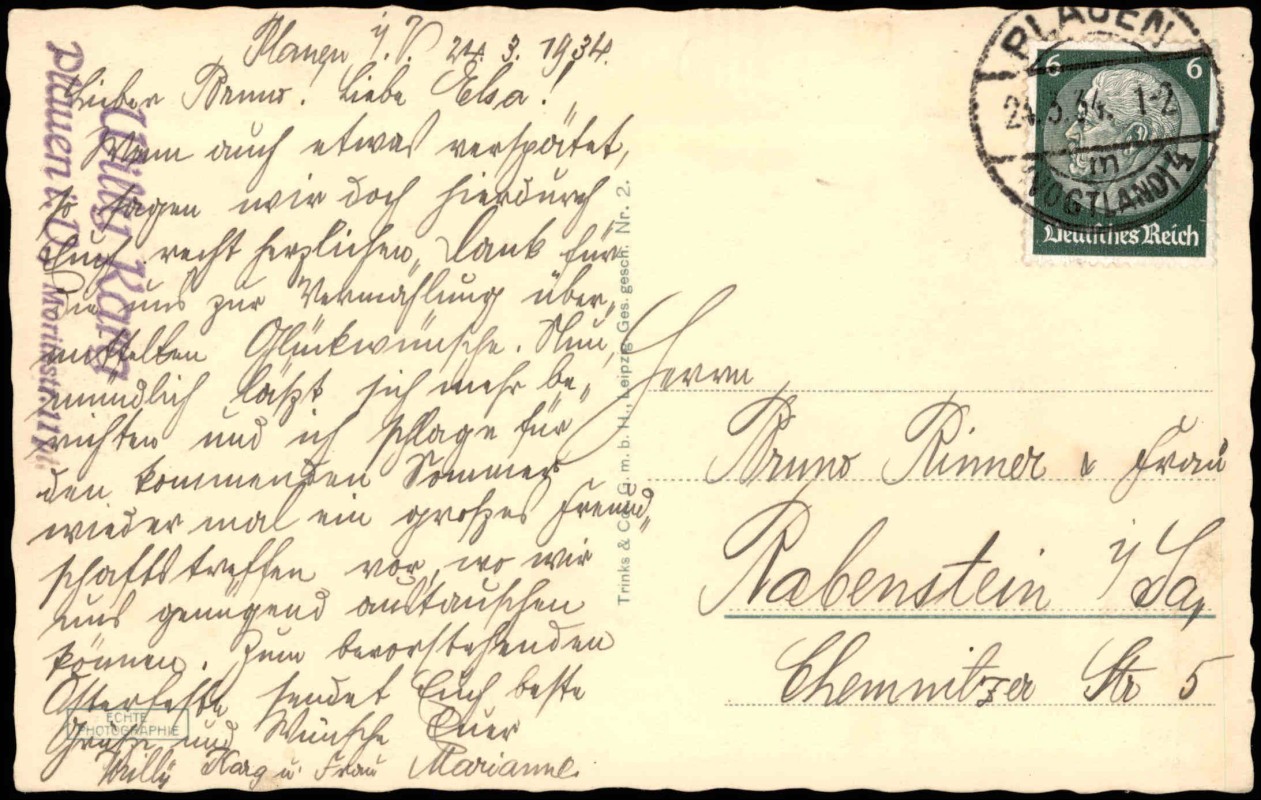 Plauen i. V. 24. 3. 1934.
Lieber Bruno! Liebe Elsa!
Wenn auch etwas verspätet,
so sagen wir doch hierdurch
Euch recht herzlichen Dank für
die uns zur Vermählung über-
mittelten Glückwünsche. Nun,
mündlich läßt sich mehr be-
richten und ich schlage für
den kommenden Sommer
wieder mal ein großes Freund-
schaftstreffen vor, wo wir
uns genügend austauschen
können. Zum bevorstehenden
Osterfeste sendet Euch beste
Grüße und Wünsche Euer
Willy Karg u. Frau Marianne.
Willy Karg
Plauen i. V.
Moritzstr.
ECHTE
PHOTOGRAPHIE
Trinks & Co. G. m. b. H., Leipzig Ges. gesch. Nr. 2.
PLAUEN
24.3.34. 1-2
in
(VOGTLAND) 4
6 6
Deutsches Reich
Herrn
Bruno Rinner & Frau
Rabenstein i/Sa,
Chemnitzer Str 5